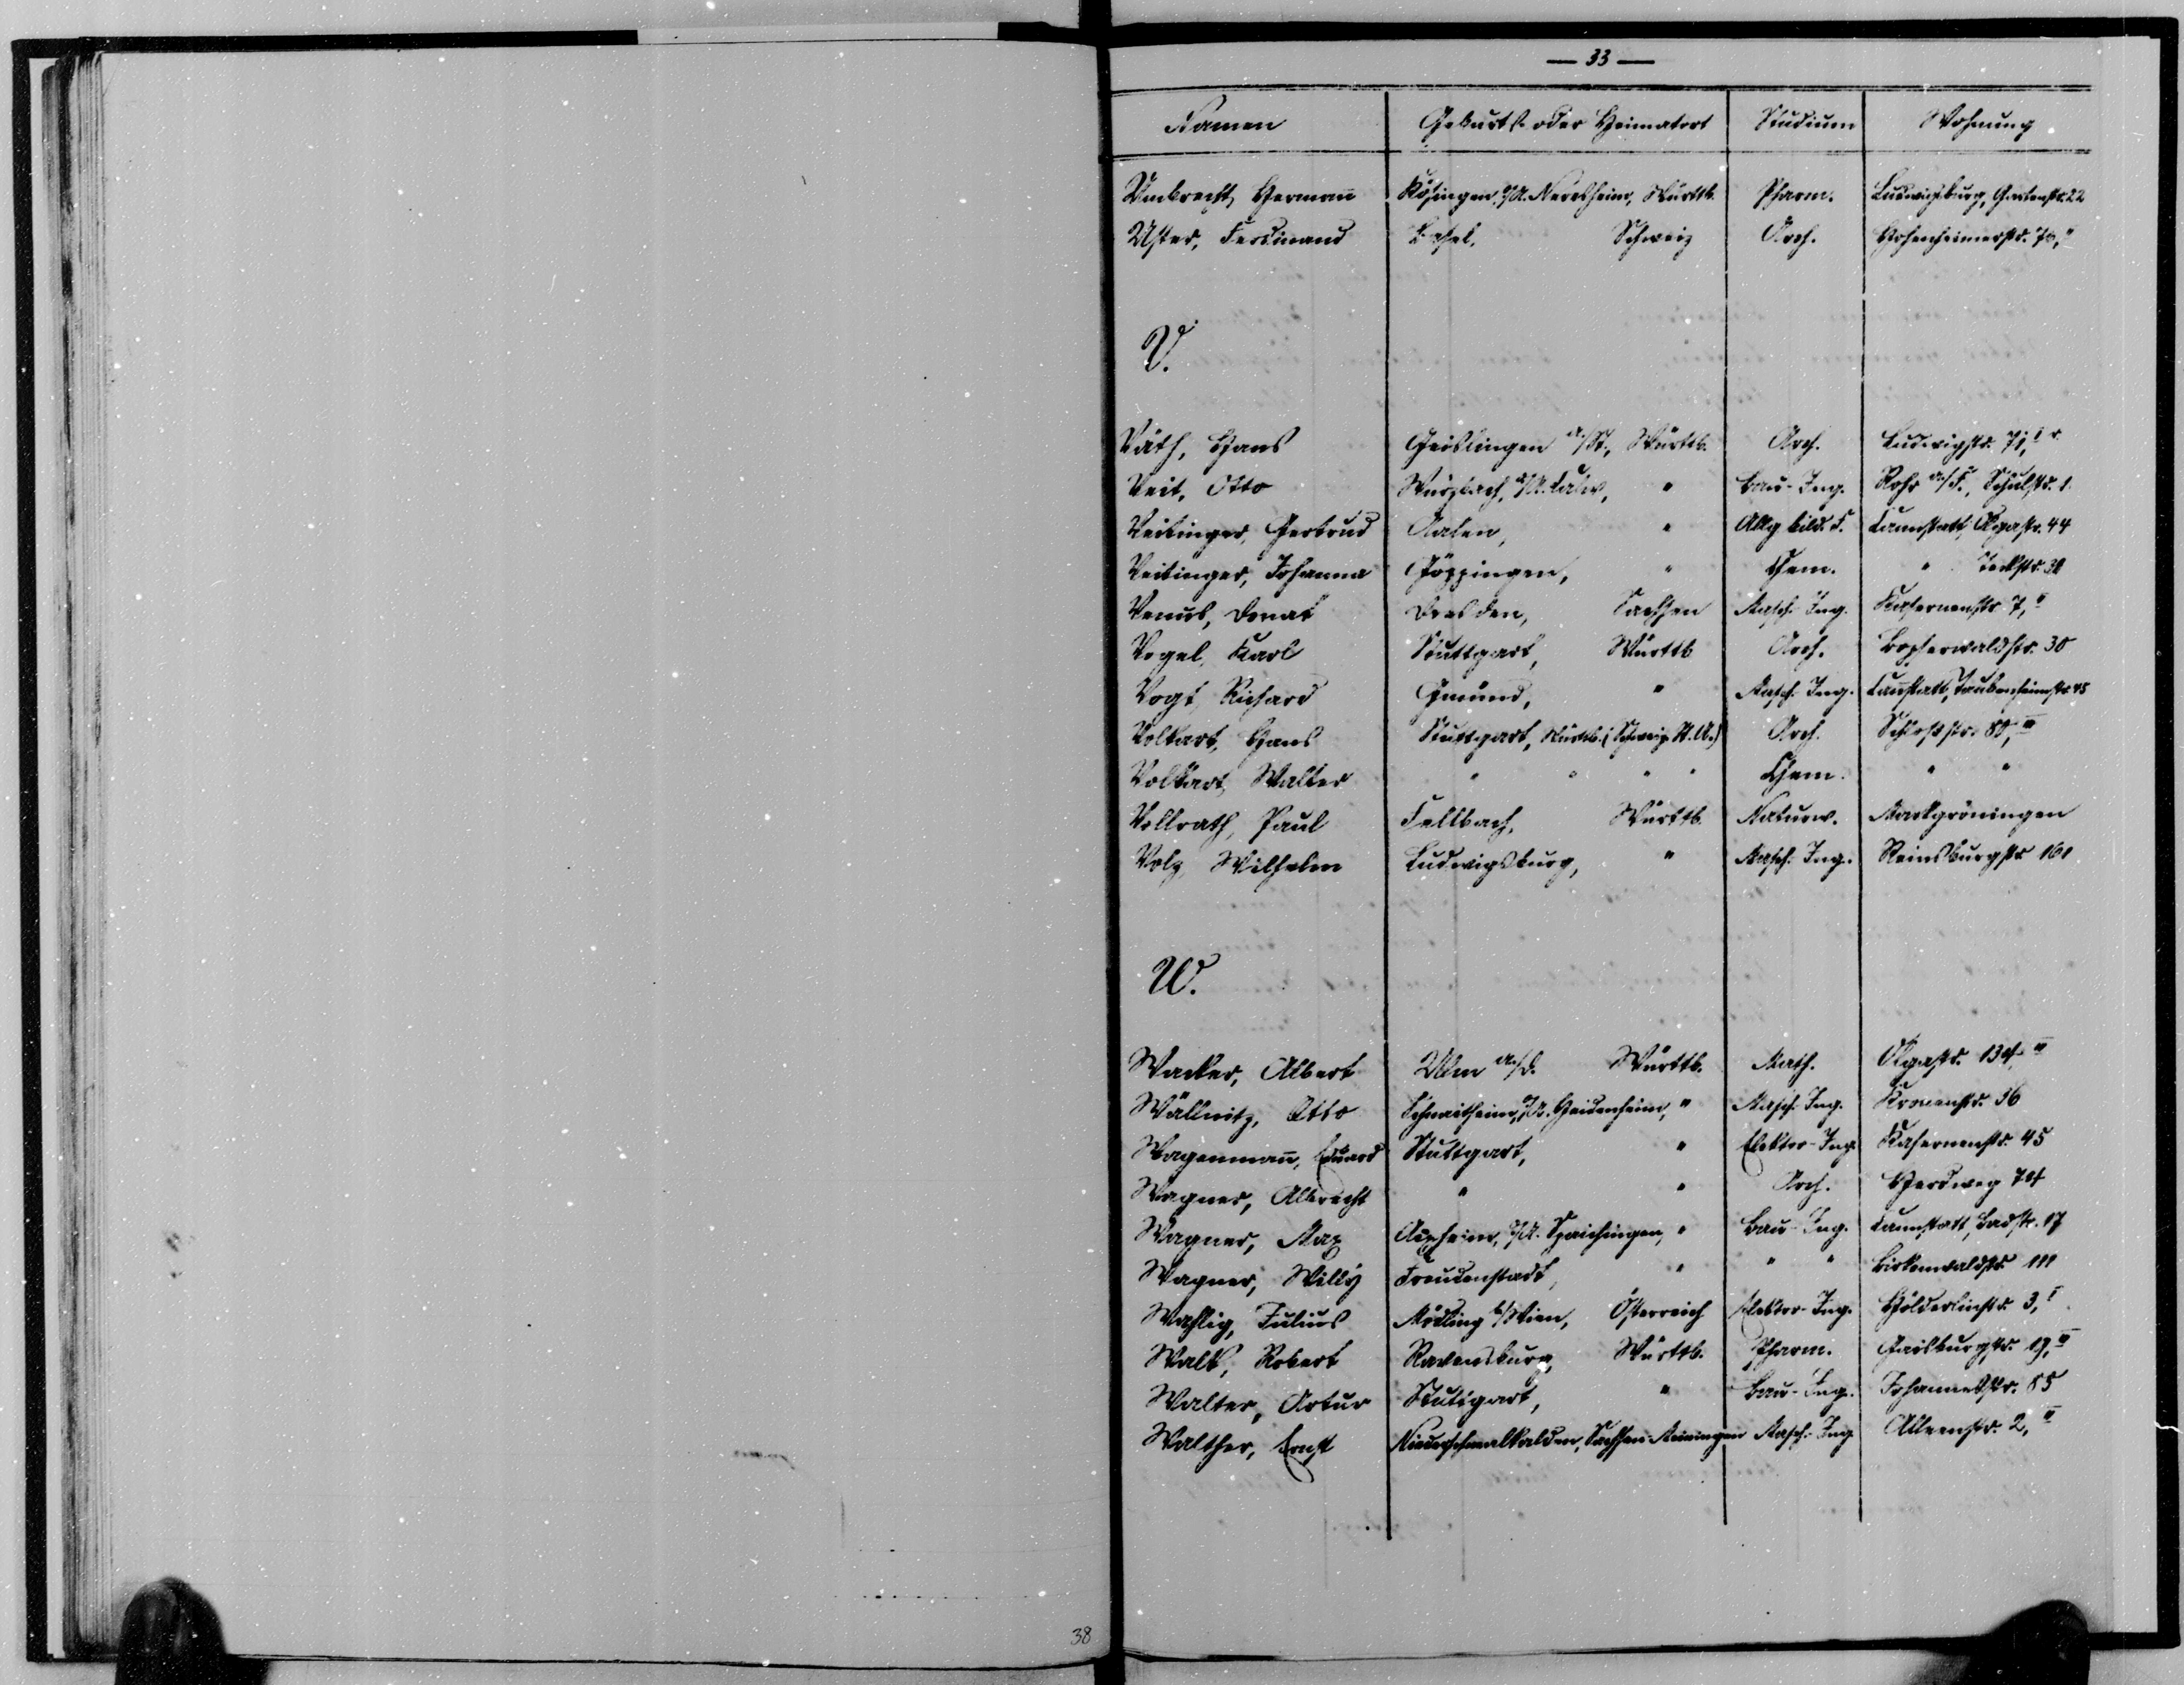 — 33 —
Namen Geburts- oder Heimatort Studium Wohnung
Umbrecht, Hermañ Kösingen, O/A. Neresheim, Württb. Pharm. Ludwigsburg, Gartenstr. 22
Uster, Ferdinand Basel, Schweiz Arch. Hohenheimerstr. 70, II
V.
Väth, Hans Geislingen a./St., Württb. Arch. Ludwigstr. 71, I r.
Veit, Otto Würzbach, O/A. Calw, " Bau-Ing. Rohr a./F., Schulstr. 1.
Veitinger, Gertrud Aalen, " Allg. bild. F. Cannstatt, Olgastr. 44
Veitinger, Johanna Göppingen, " Chem. " Teckstr. 38
Venus, Donat Dresden, Sachsen Masch.-Ing. Kasernenstr. 7, II
Vogel, Karl Stuttgart, Württb. Arch. Bopserwaldstr. 30
Vogt, Richard Gmünd, " Masch.-Ing. Cañstatt, Taubenheimstr. 45
Volkart, Hans Stuttgart, Württb. (Schweiz. St. A.) Arch. Schloßstr. 80, III
Volkart, Walter " " " " Chem. " "
Vollrath, Paul Fellbach, Württb. Naturw. Markgröningen
Volz, Wilhelm Ludwigsburg, " Masch.-Ing. Reinsburgstr. 161
W.
Wacker, Albert Ulm a./D. Württb. Math. Olgastr. 134, III
Wällnitz, Otto Schnaitheim, O/A. Heidenheim, " Masch.-Ing. Kronenstr. 36
Wagenmañ, Eduard Stuttgart, " Elektro-Ing. Kasernenstr. 45
Wagner, Albrecht " " Arch. Herdweg 74
Wagner, Max Aixheim, O/A. Spaichingen, " Bau-Ing. Cannstatt, Badstr. 17
Wagner, Willy Freudenstadt, " " " Birkenwaldstr. 111
Wahlig, Julius Mödling b/Wien, Österreich Elektro-Ing. Hölderlinstr. 3, I
Walk, Robert Ravensburg, Württb. Pharm. Gaisburgstr. 19, II
Walter, Artur Stuttgart, " Bau-Ing. Johannesstr. 85
Walther, Ernst Niederschmalkalden, Sachsen-Meiningen Masch.-Ing. Alleenstr. 2, II
38